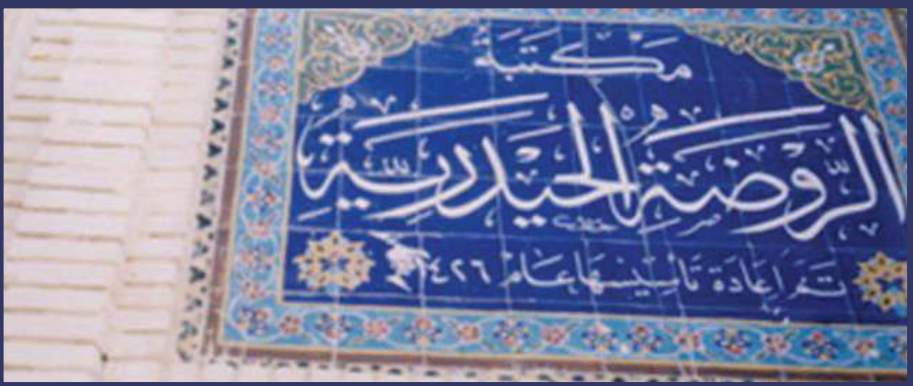 مَكتَبَةُ
الرَّوضَةِ الحَيدَرِيَّةِ
تَمَّ اِعَادَة تَأسِيسهَا عَامَ ١٤٢٦